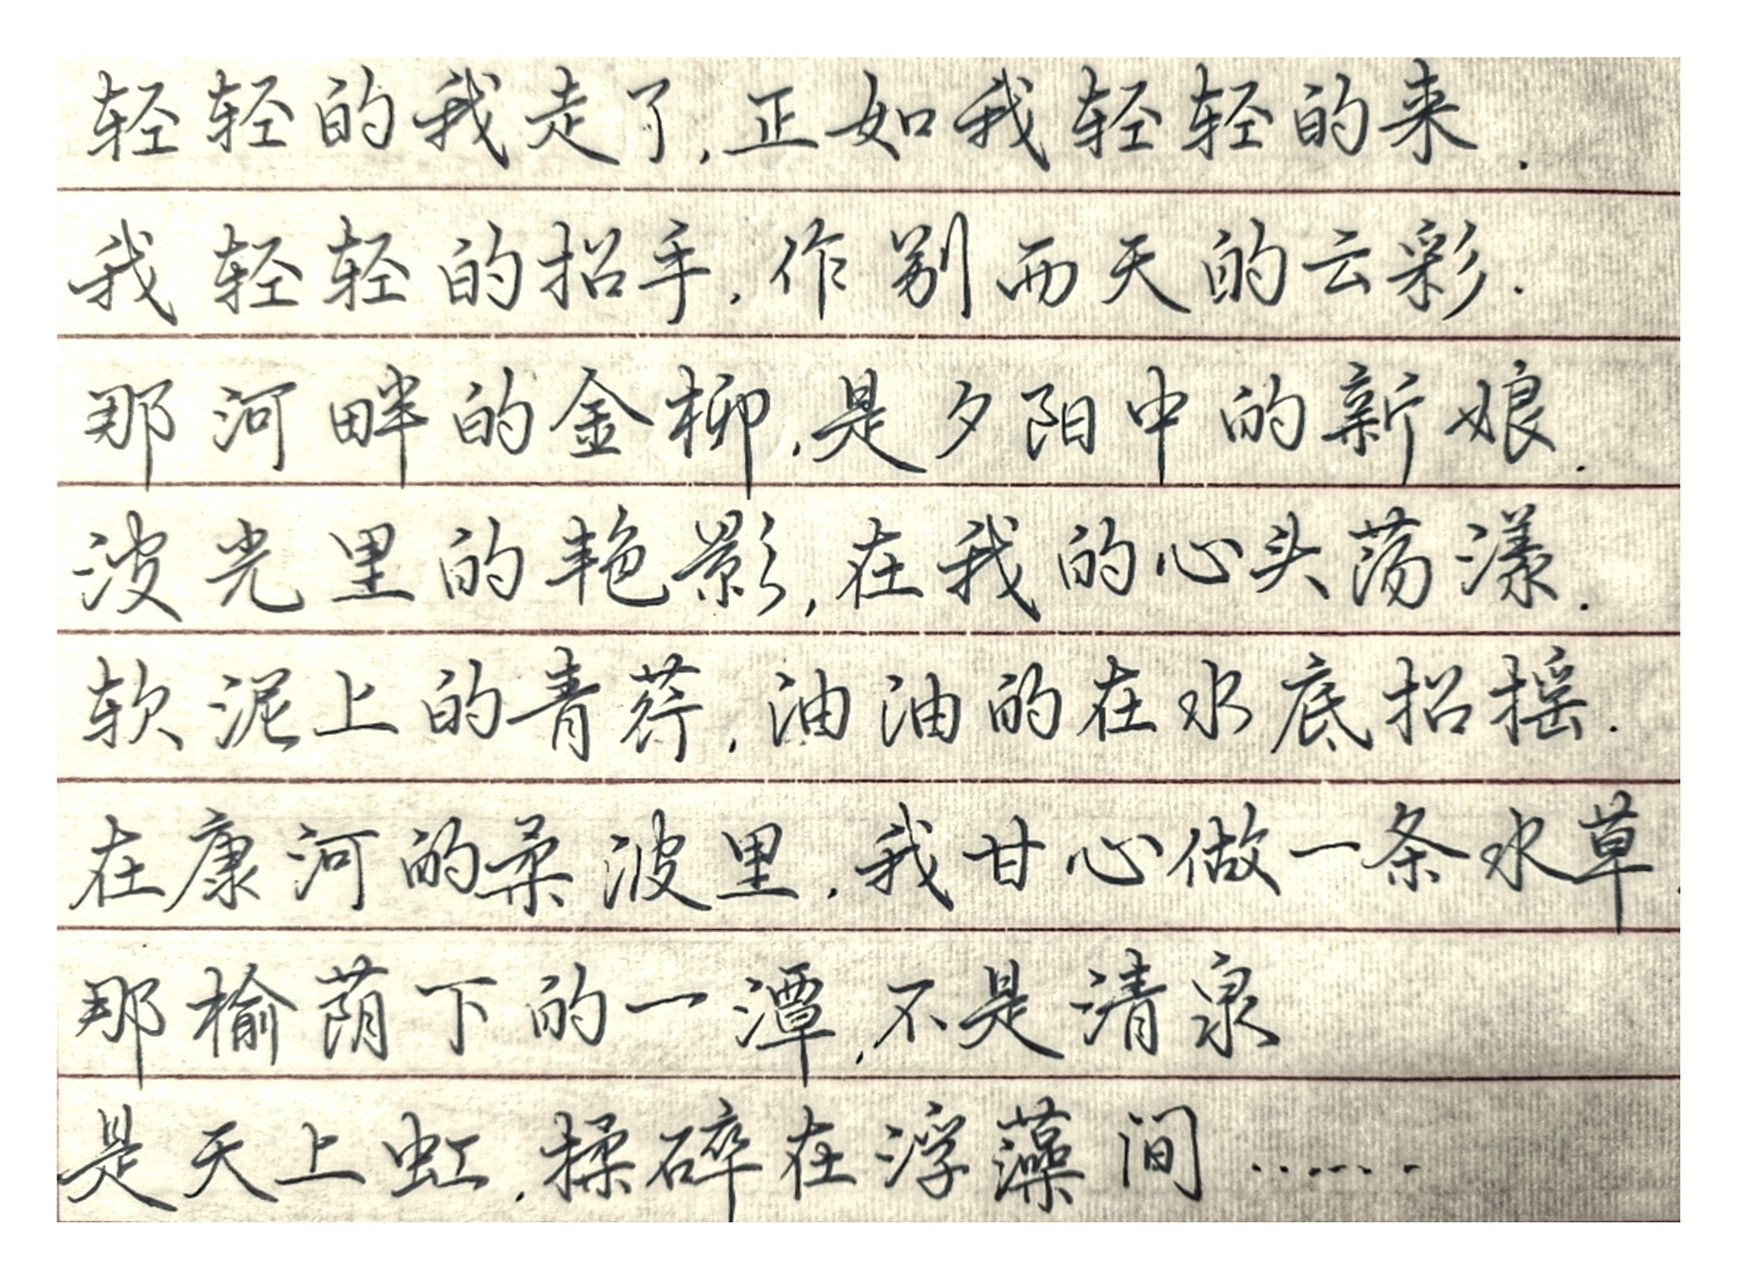 轻轻的我走了,正如我轻轻的来.
我轻轻的招手,作别西天的云彩.
那河畔的金柳,是夕阳中的新娘.
波光里的艳影,在我的心头荡漾.
软泥上的青荇,油油的在水底招摇.
在康河的柔波里,我甘心做一条水草.
那榆荫下的一潭,不是清泉
是天上虹,揉碎在浮藻间……